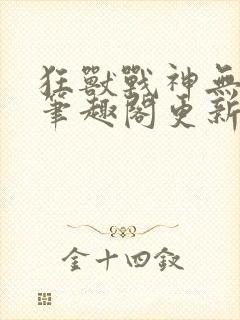 狂獸戰神無
筆趣閣更新
金十四釵